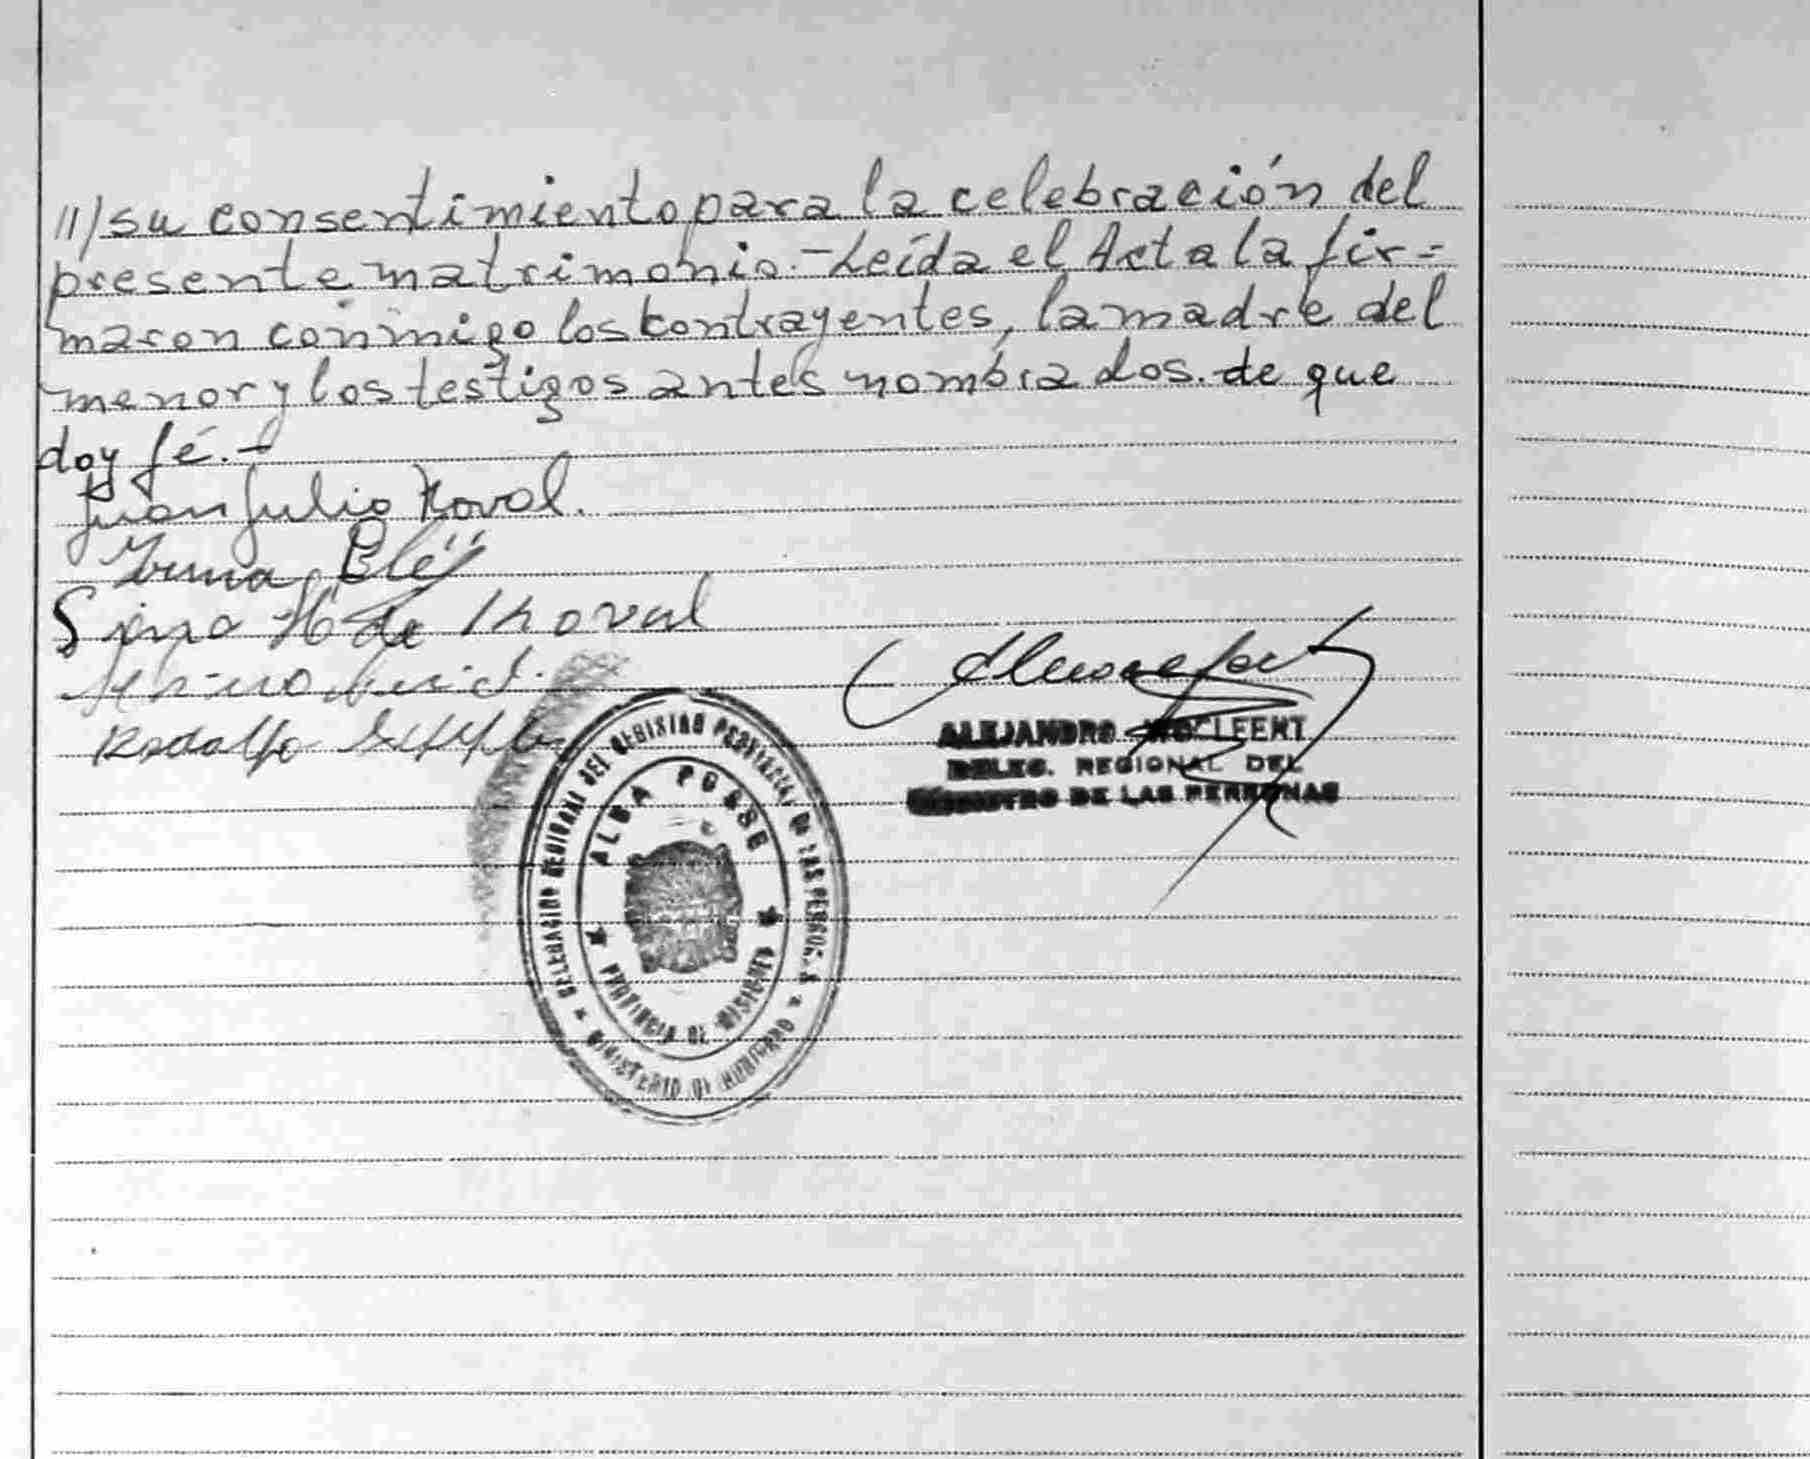 11/ su consentimiento para la celebración del
presente matrimonio.- Leída el Acta la fir=
maron conmigo los contrayentes, la madre del
menor y los testigos antes nombrados. de que
doy fé.-
Juan Julio Koval.
Irma
de Koval
Rodolfo
ALEJANDRO
DELEG. REGIONAL DEL
REGISTRO DE LAS PERSONAS
DELEGACION REGIONAL DEL REGISTRO PROVINCIAL DE LAS PERSONAS
ALBA POSSE
PROVINCIA DE MISIONES
MINISTERIO DE GOBIERNO